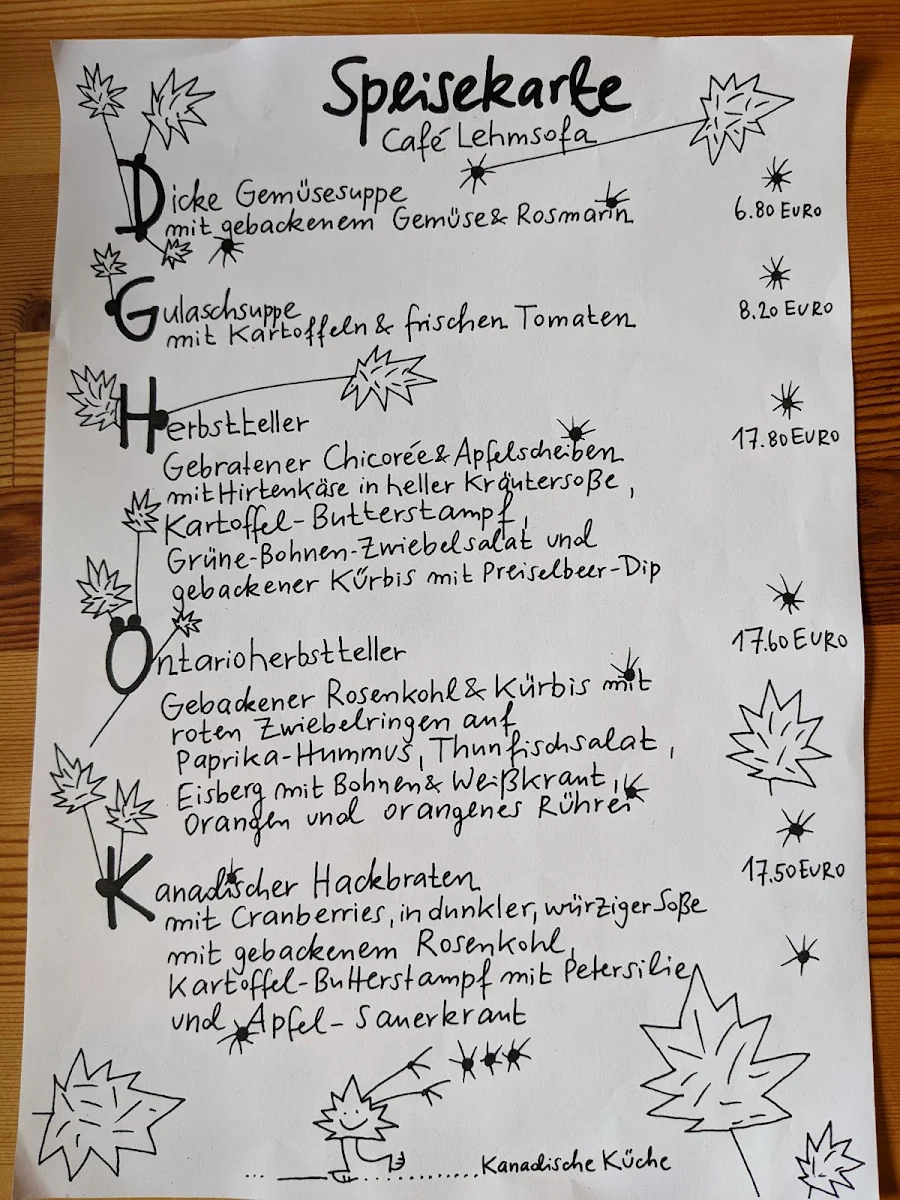 Speisekarte
Café Lehmsofa
Dicke Gemüsesuppe
mit gebackenem Gemüse & Rosmarin
6.80 EURO
Gulaschsuppe
mit Kartoffeln & frischen Tomaten
8.20 EURO
Herbstteller
17.80 EURO
Gebratener Chicorée & Apfelscheiben
mit Hirtenkäse in heller Kräutersoße,
Kartoffel-Butterstampf,
Grüne-Bohnen-Zwiebelsalat und
gebackener Kürbis mit Preiselbeer-Dip
Ontarioherbstteller
17.60 EURO
Gebackener Rosenkohl & Kürbis mit
roten Zwiebelringen auf
Paprika-Hummus, Thunfischsalat,
Eisberg mit Bohnen & Weißkraut,
Orangen und orangenes Rührei
Kanadischer Hackbraten
17.50 EURO
mit Cranberries, in dunkler, würziger Soße
mit gebackenem Rosenkohl,
Kartoffel-Butterstampf mit Petersilie
und Apfel-Sauerkraut
... ............ Kanadische Küche